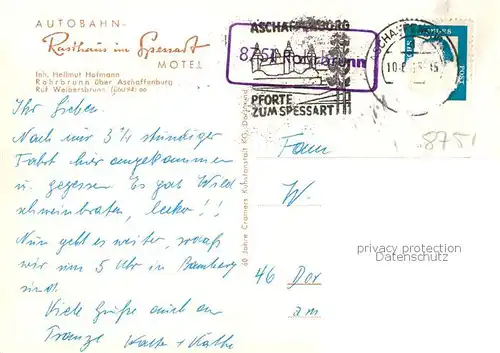 AUTOBAHN-
Rasthaus im Spessart
MOTEL
Inh. Hellmut Hofmann
Rohrbrunn über Aschaffenburg
Ruf Weibersbrunn
ASCHAFFENBURG
8751 Rohrbrunn
PFORTE
ZUM SPESSART
POST
8751
Ihr Lieben.
Nach nur 3 1/4 stündiger
Fahrt hier angekommen
u. gegessen. Es gab Wild
schweinbraten, lecker!!
Nun geht es weiter, sodaß
wir um 5 Uhr in Bamberg
sind.
Viele Grüße auch an
Franze Kalle + Käthe
60 Jahre Cramers Kunstanstalt KG, Dortmund
Fam
W.
46 Dor
am
privacy protection
Datenschutz